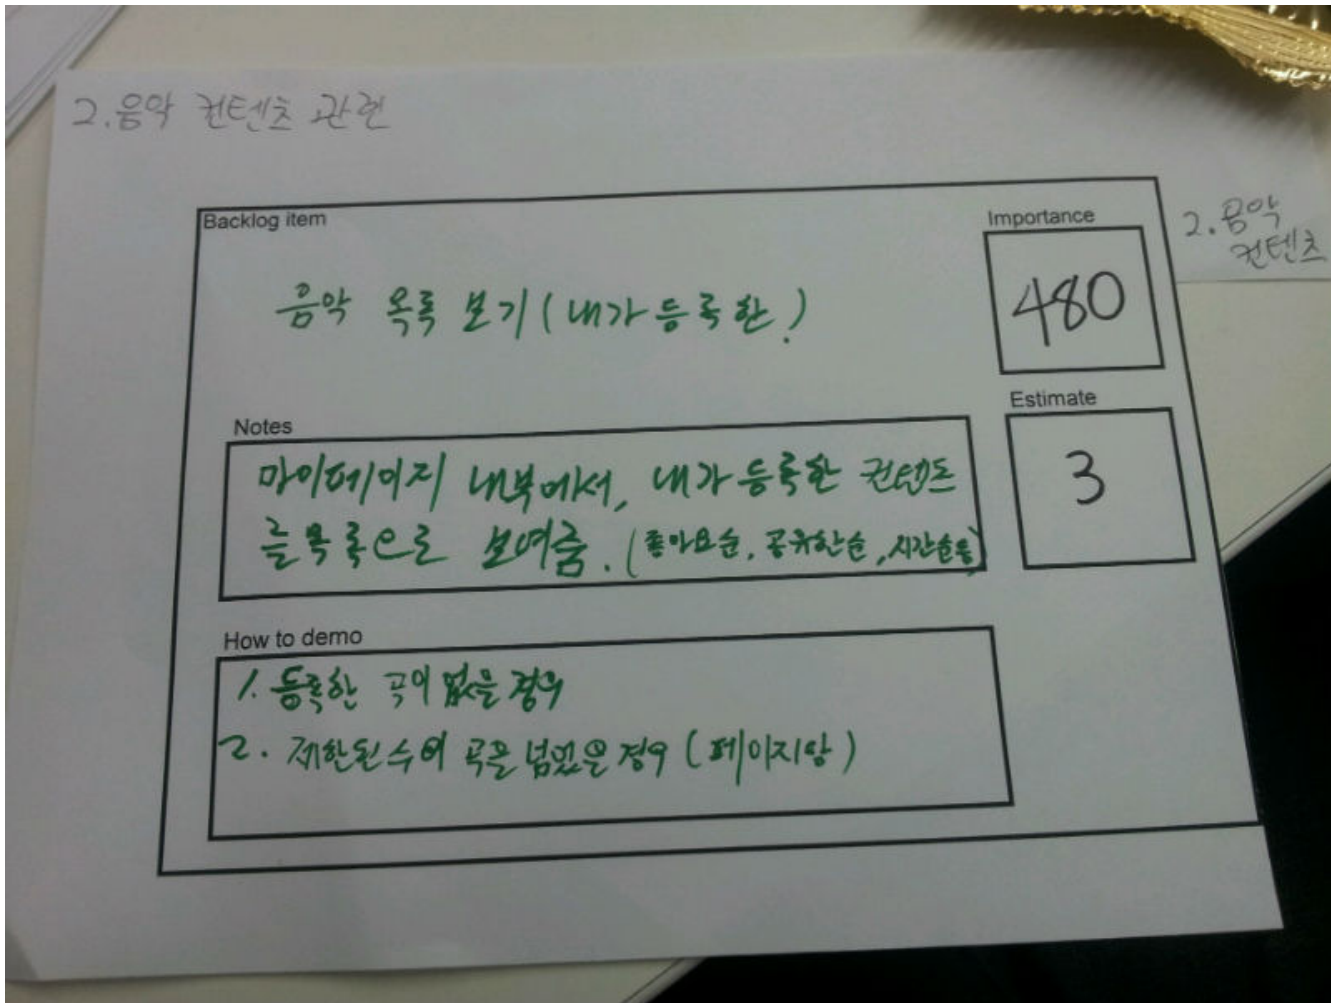 2. 음악 컨텐츠 관련
Backlog item
음악 목록 보기 (내가 등록한)
Importance
480
2. 음악
컨텐츠
Estimate
3
Notes
마이페이지 내부에서, 내가 등록한 컨텐츠
를 목록으로 보여줌. (좋아요순, 공유한순, 시간순등)
How to demo
1. 등록한 곡이 없을 경우
2. 제한된 수의 곡을 넘었을 경우 (페이지당)